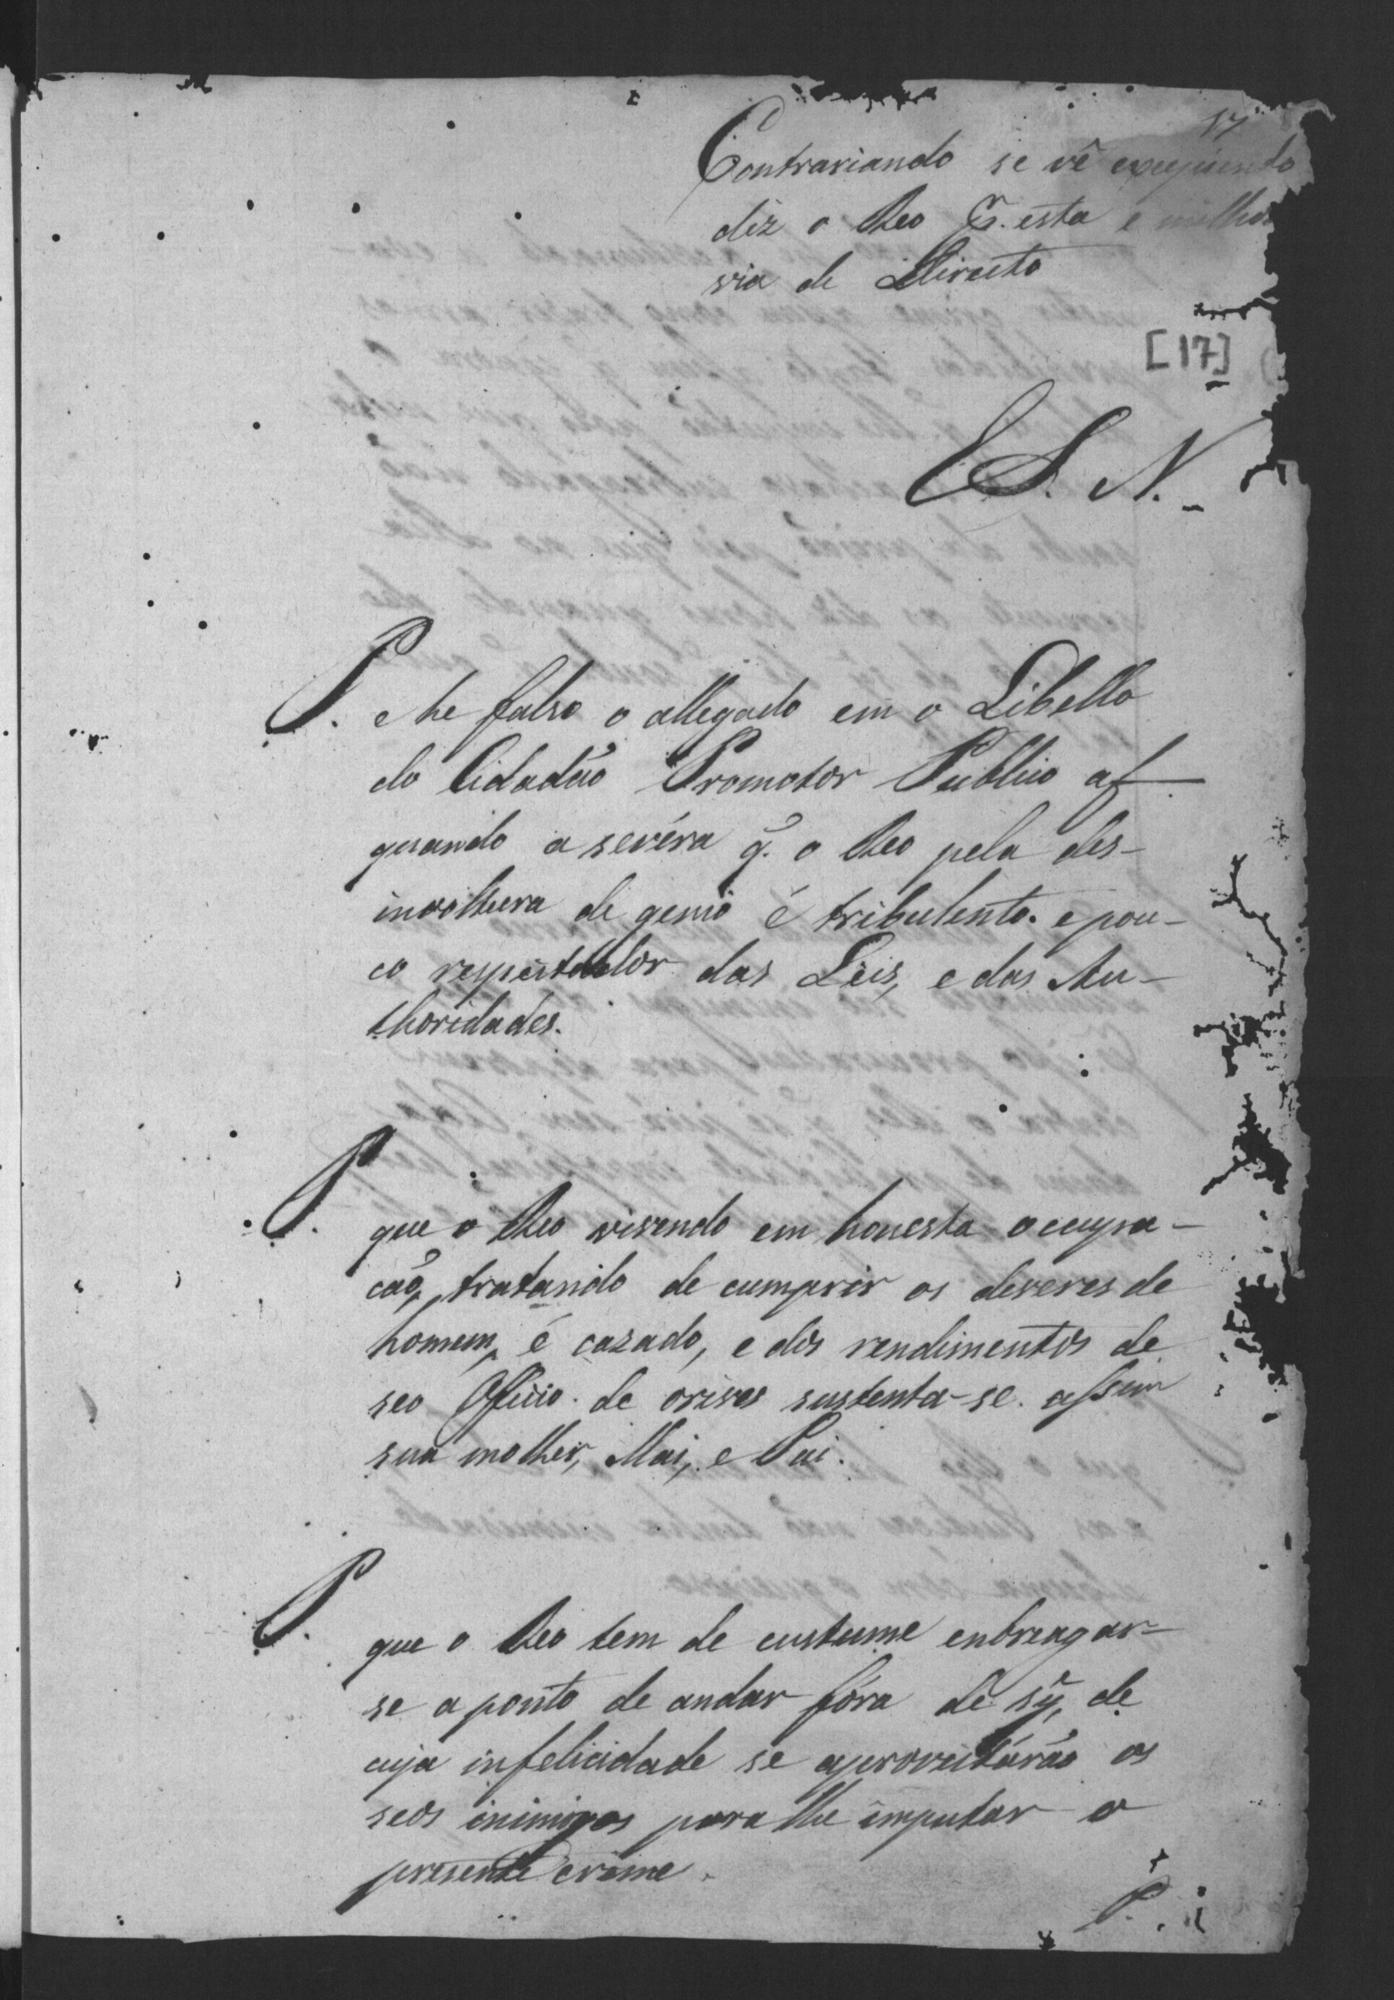 17
Contrariando se vê
diz o Reo P. esta e milhor
via de Direito
[17]
E S. N.
P. e he falso o allegado em o Libello
do Cidadão Promotor Publico af
quando a sevéra q. o Reo pela des-
involtura de genio é tribulento. e pou-
co respeitador das Leis, e das Au-
thoridades.
P. que o Reo vivendo em honesta occupa-
cão, tratando de cumprir os deveres de
homem, é cazado, e dos rendimentos de
seo Oficio de orives sustenta-se. assim
sua molher, Mai, e Pai.
P. que o Reo tem de custume enbreagar-
se a ponto de andar fóra de sy, de
cuja infelicidade se aproveitárão os
seos inimigos para lhe imputar o
presente crime.
P.